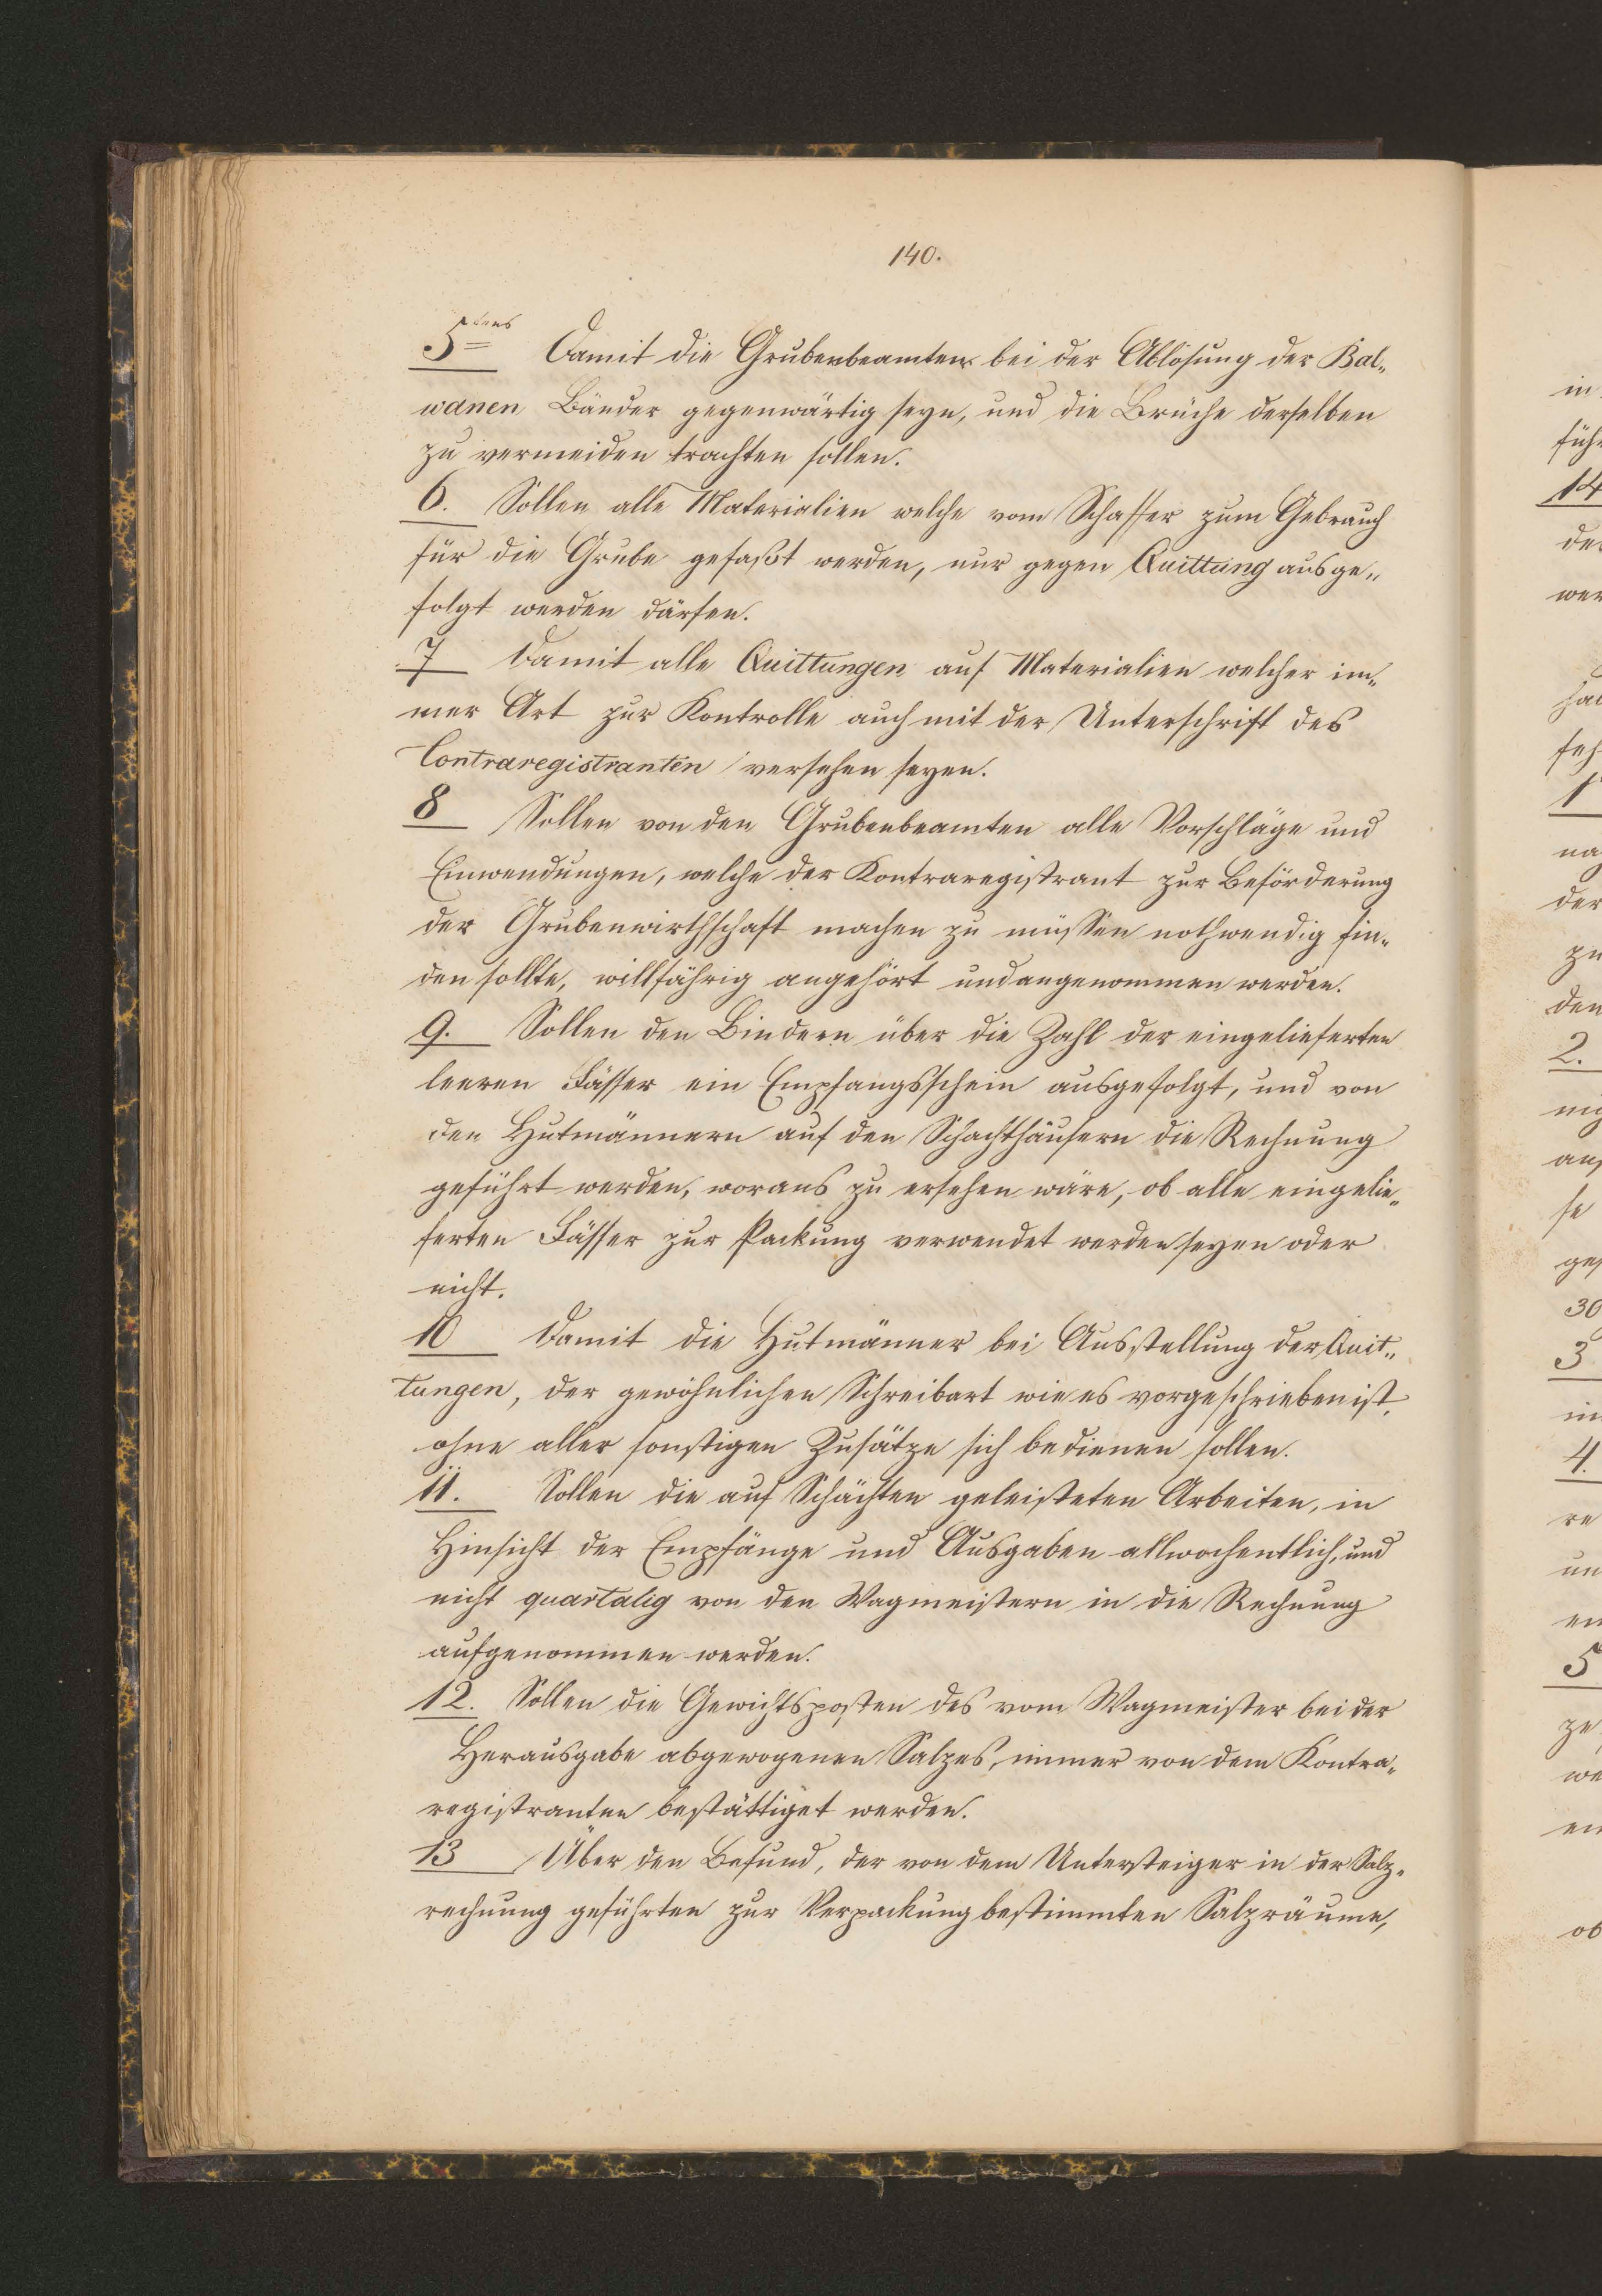 140.
5tens Damit die Grubenbeamten bei der Ablösung der Bal„
wanen Bänder gegenwärtig seyn, und die Brüche derselben
zu vermeiden trachten sollen.
6. Sollen alle Materialien welche vom Schaffer zum Gebrauch
für die Grube gefaßt werden, nur gegen Quittung ausge„
folgt werden därfen.
7 Damit alle Quittungen auf Materialien welcher im„
mer Art zur Kontrolle auch mit der Unterschrift des
Contraregistranten versehen seyen.
8 Sollen von den Grubenbeamten alle Vorschläge und
Einwendungen, welche der Kontraregistrant zur Beförderung
der Grubenwirthschaft machen zu müssen nothwendig fin„
den sollte, willfährig angehört und angenommen werden.
9. Sollen den Bindern über die Zahl der eingelieferten
leeren Fässer ein Empfangsschein ausgefolgt, und von
den Hutmännern auf den Schachthäusern die Rechnung
geführt werden, woraus zu ersehen wäre, ob alle eingelie„
ferten Fässer zur Packung verwendet werden seyen oder
nicht.
10 Damit die Hutmänner bei Ausstellung der Quit„
tungen, der gewöhnlichen Schreibart wie es vorgeschrieben ist,
ohne aller sonstigen Zusätze sich bedienen sollen.
11. Sollen die auf Schächten geleisteten Arbeiten, in
Hinsicht der Empfänge und Ausgaben allwochentlich, und
nicht quartalig von den Wagmeistern in die Rechnung
aufgenommen werden.
12. Sollen die Gewichtsposten des vom Wagmeister bei der
Herausgabe abgewogenen Salzes, immer von dem Kontra„
registranten bestättiget werden.
13 Über den Befund, der von dem Untersteiger in der Salz„
rechnung geführten zur Verpackung bestimmten Salzräume,